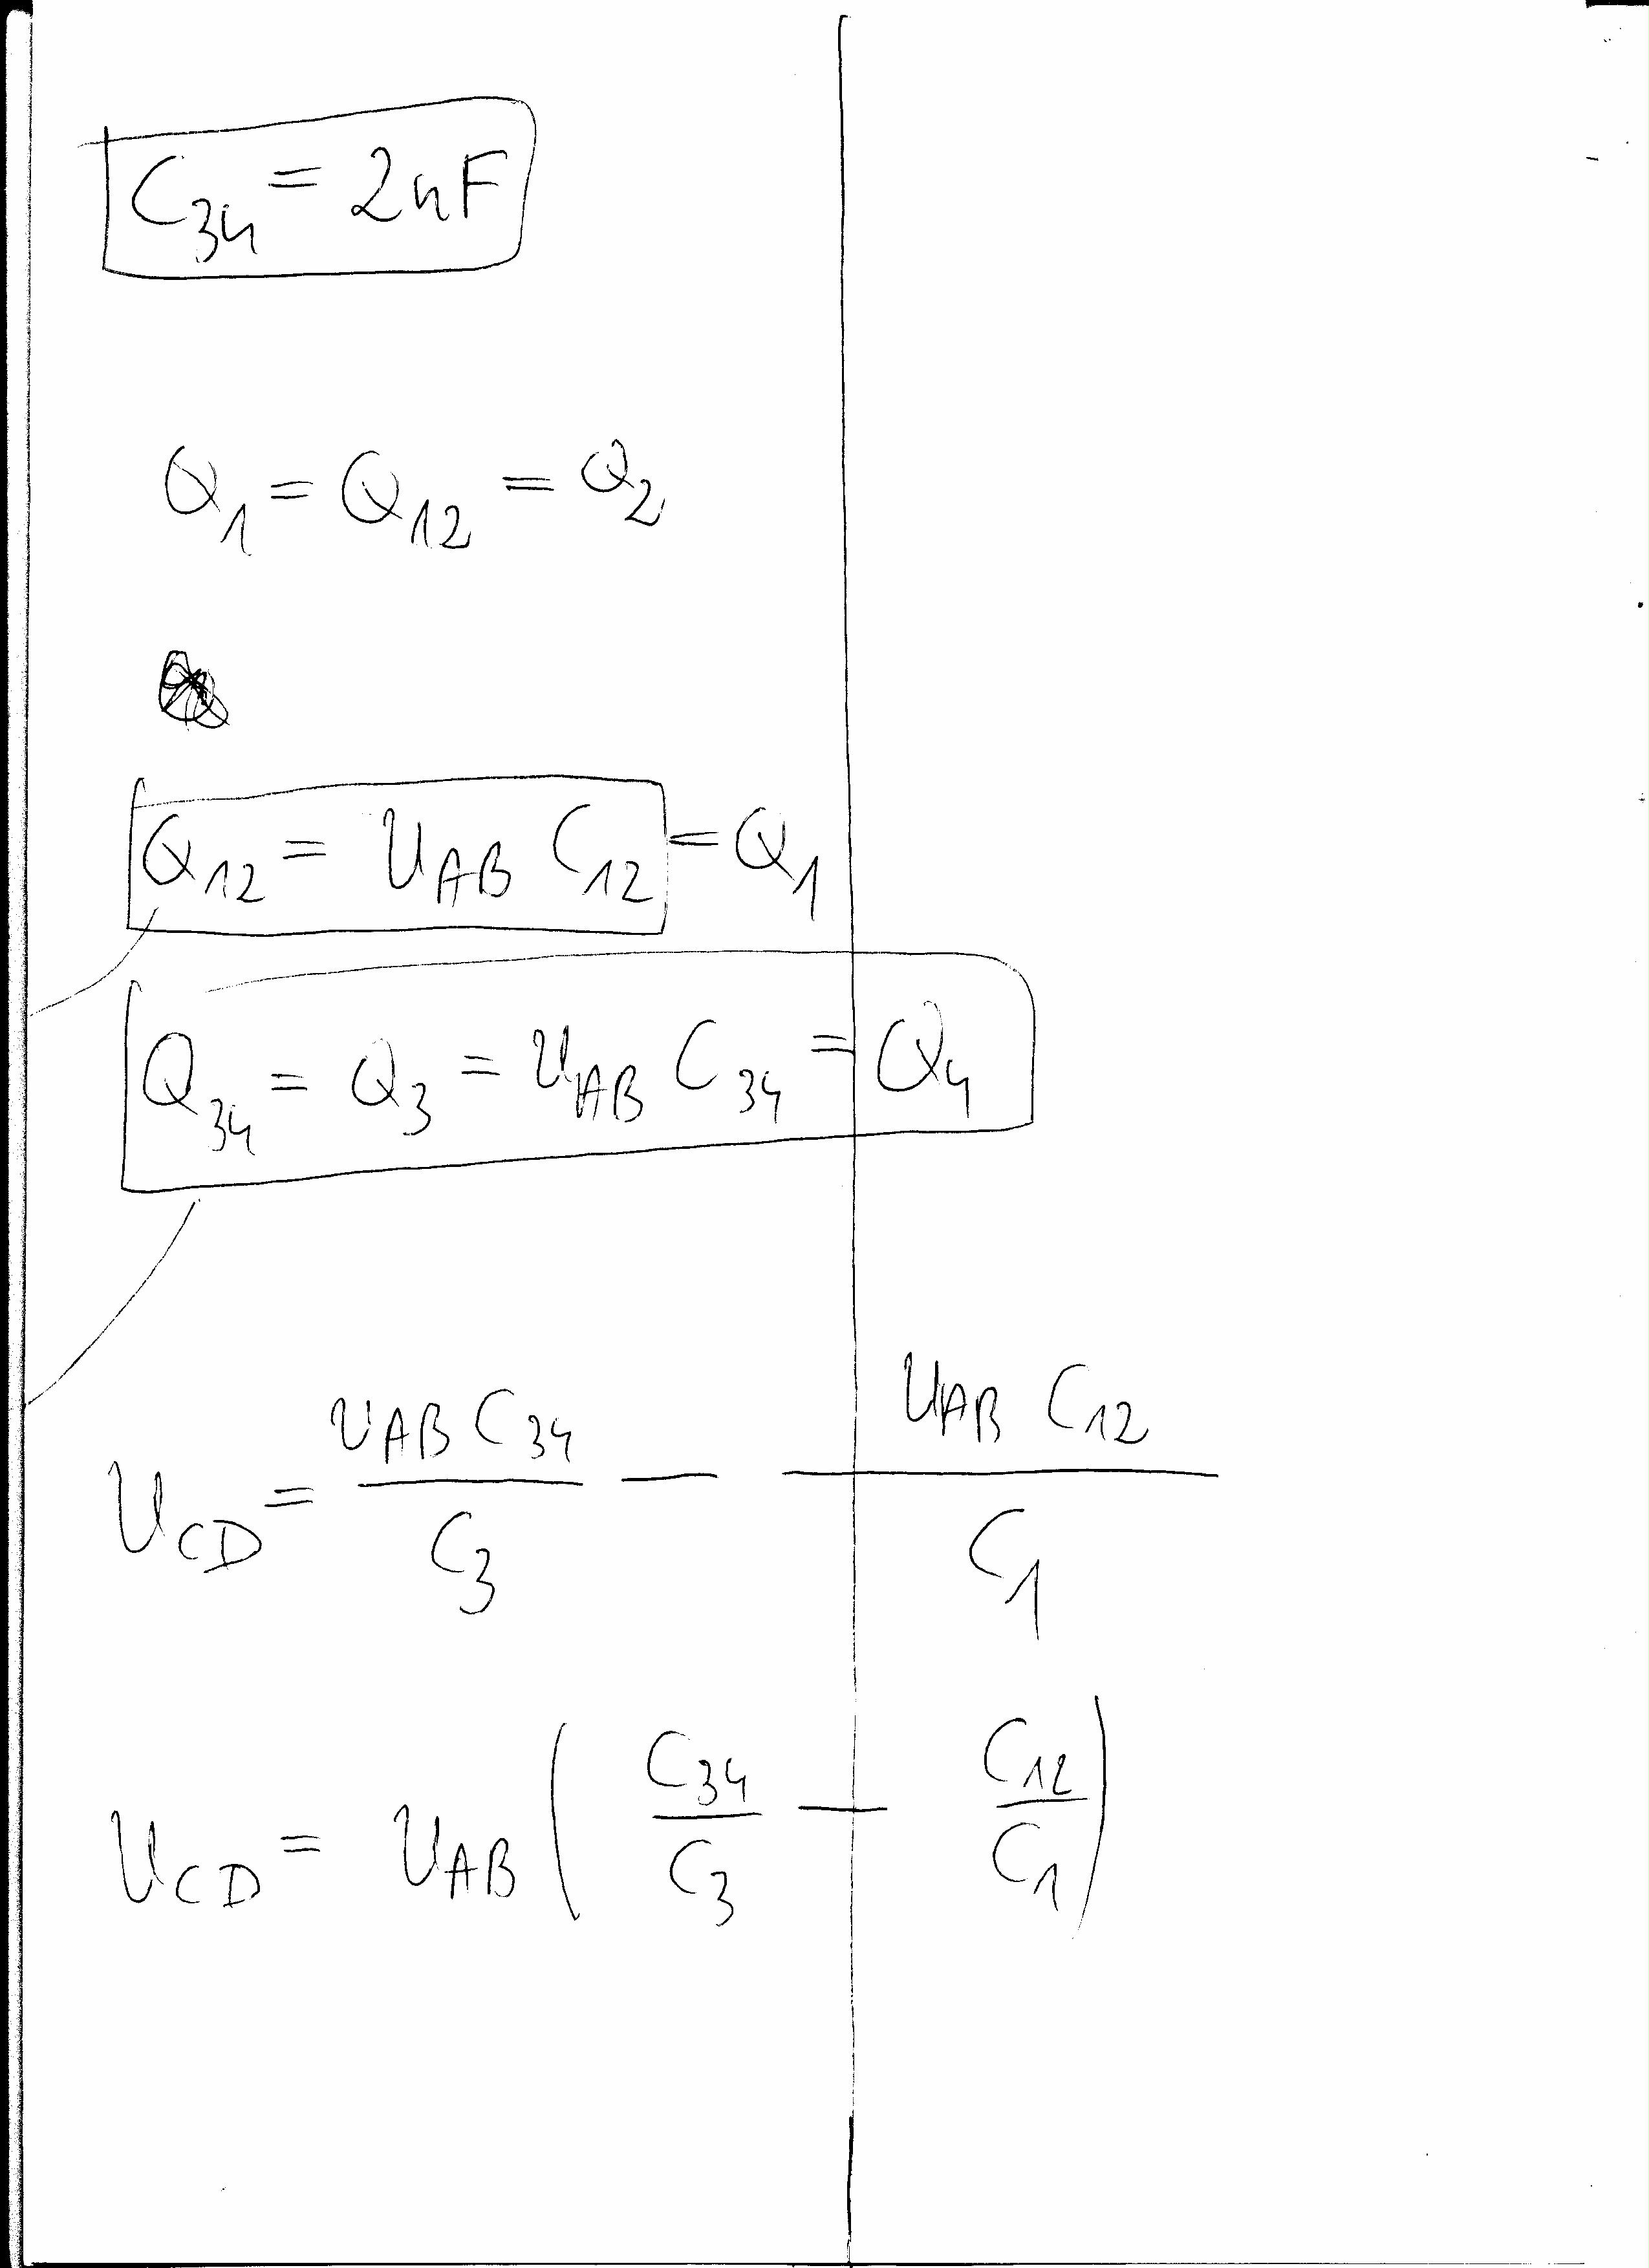 C₃₄ = 2nF
Q₁ = Q₁₂ = Q₂
Q₁₂ = U_AB C₁₂ = Q₁
Q₃₄ = Q₃ = U_AB C₃₄ = Q₄
U_CD = (U_AB C₃₄)/C₃ − (U_AB C₁₂)/C₁
U_CD = U_AB (C₃₄/C₃ − C₁₂/C₁)